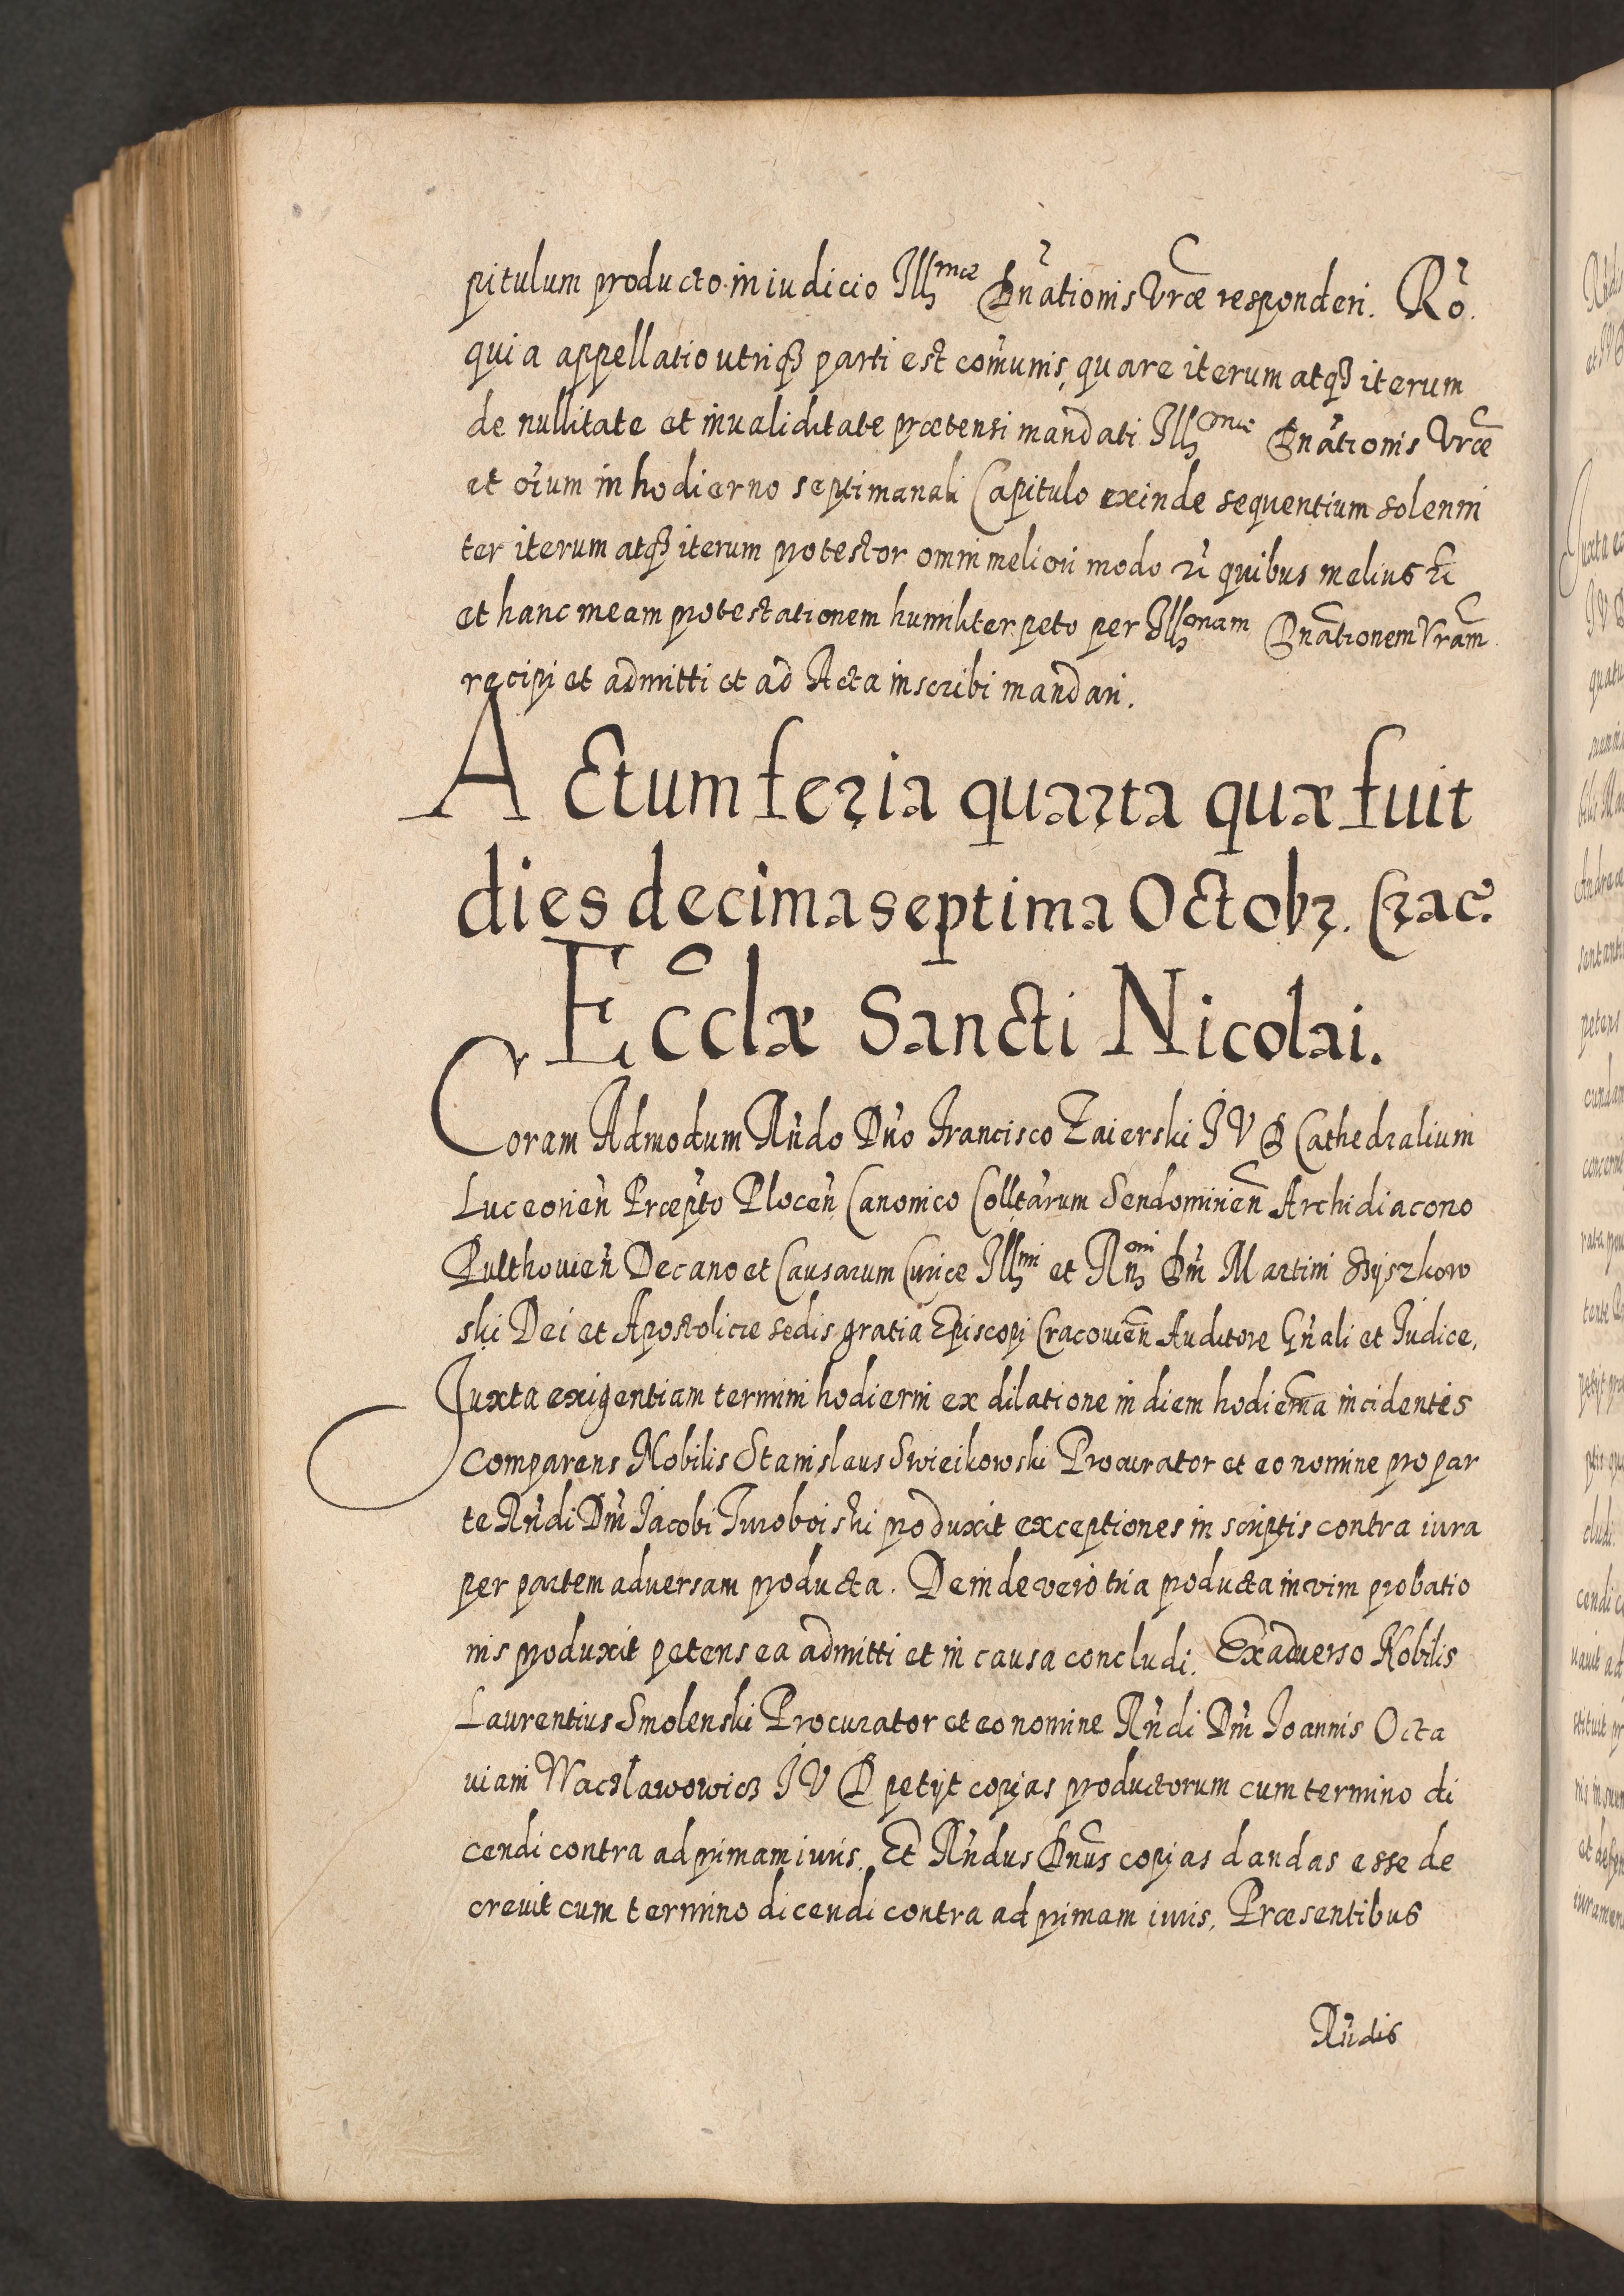 pitulum producto in iudicio Illmæ Dnationis Vræ responderi. Ro.
quia appellatio utriqȝ parti est comunis, quare iterum atqȝ iterum
de nullitate et inualiditate prætensi mandati Illmæ Dnationis Vræ
et oium in hodierno septimanali Capitulo exinde sequentium solenni
ter iterum atqȝ iterum protestor omni meliori modo et quibus melius et
et hanc meam protestationem humiliter peto per Illmam Dnationem Vram
recipi et admitti et ad Acta inscribi mandari.
Actum feria quarta quæ fuit
dies decima septima Octobr. Crac.
Ecclæ Sancti Nicolai.
Coram Admodum Rndo Dno Francisco Zaierski I V D Cathedralium
Luceorien Præpto Plocen Canonico Colltarum Sendomirien Archidiacono
Pulthouien Decano et Causarum Curiæ Illmi et Rnmi Dni Martini Szyszkow
ski Dei et Apostolicæ sedis gratia Episcopi Cracouien Auditore Gnali et Iudice,
Iuxta exigentiam termini hodierni ex dilatione in diem hodierna incidentis
Comparens Nobilis Stanislaus Swieikowski Procurator et eo nomine pro par
te Rndi Dni Iacobi Turoboiski produxit exceptiones in scriptis contra iura
per partem aduersam producta. Deinde vero tria producta in vim probatio
nis produxit petens ea admitti et in causa concludi. Ex aduerso Nobilis
Laurentius Smolenski Procurator et eo nomine Rndi Dni Ioannis Octa
uiani Waclawowicz I V D petijt copias productorum cum termino di
cendi contra ad primam iuris. Et Rndus Dnus copias dandas esse de
creuit cum termino dicendi contra ad primam iuris, Præsentibus
Rndis